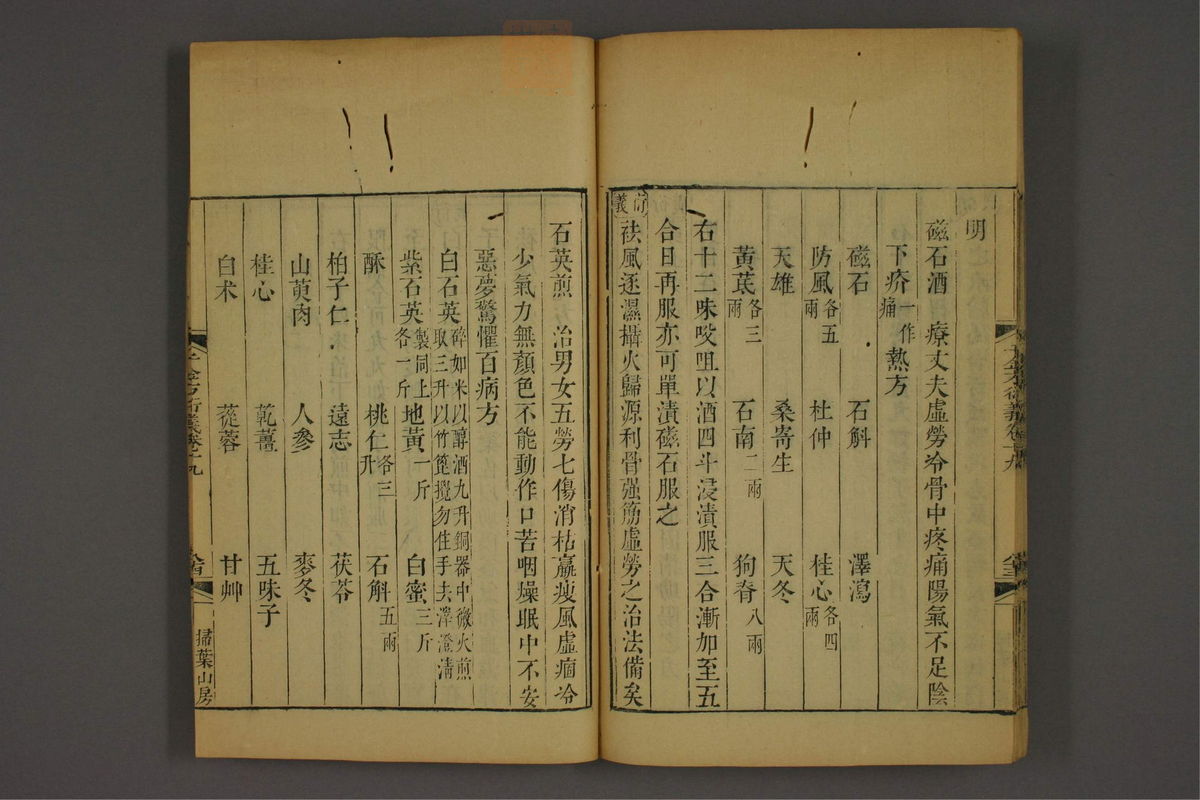 明
磁石酒　療丈夫虛勞冷骨中疼痛陽氣不足陰
下疥一作痛熱方
磁石　石斛　澤瀉
防風各五兩　杜仲　桂心各四兩
天雄　桑寄生　天冬
黃茋各三兩　石南二兩　狗脊八兩
右十二味㕮咀以酒四斗浸漬服三合漸加至五
合日再服亦可單漬磁石服之
衍義　祛風逐濕攝火歸源利骨强筋虛勞之治法備矣
石英煎　治男女五勞七傷消枯羸瘦風虛痼冷
少氣力無顏色不能動作口苦咽燥眠中不安
惡夢驚懼百病方
白石英碎如米以醇酒九升銅器中微火煎取三升以竹篦攪勿住手去滓澄淸
紫石英製同上各一斤　地黃一斤　白蜜三斤
酥　桃仁各三升　石斛五兩
柏子仁　遠志　茯苓
山萸肉　人參　麥冬
桂心　乾薑　五味子
白术　蓯蓉　甘艸
千金方衍義卷十九
掃葉山房